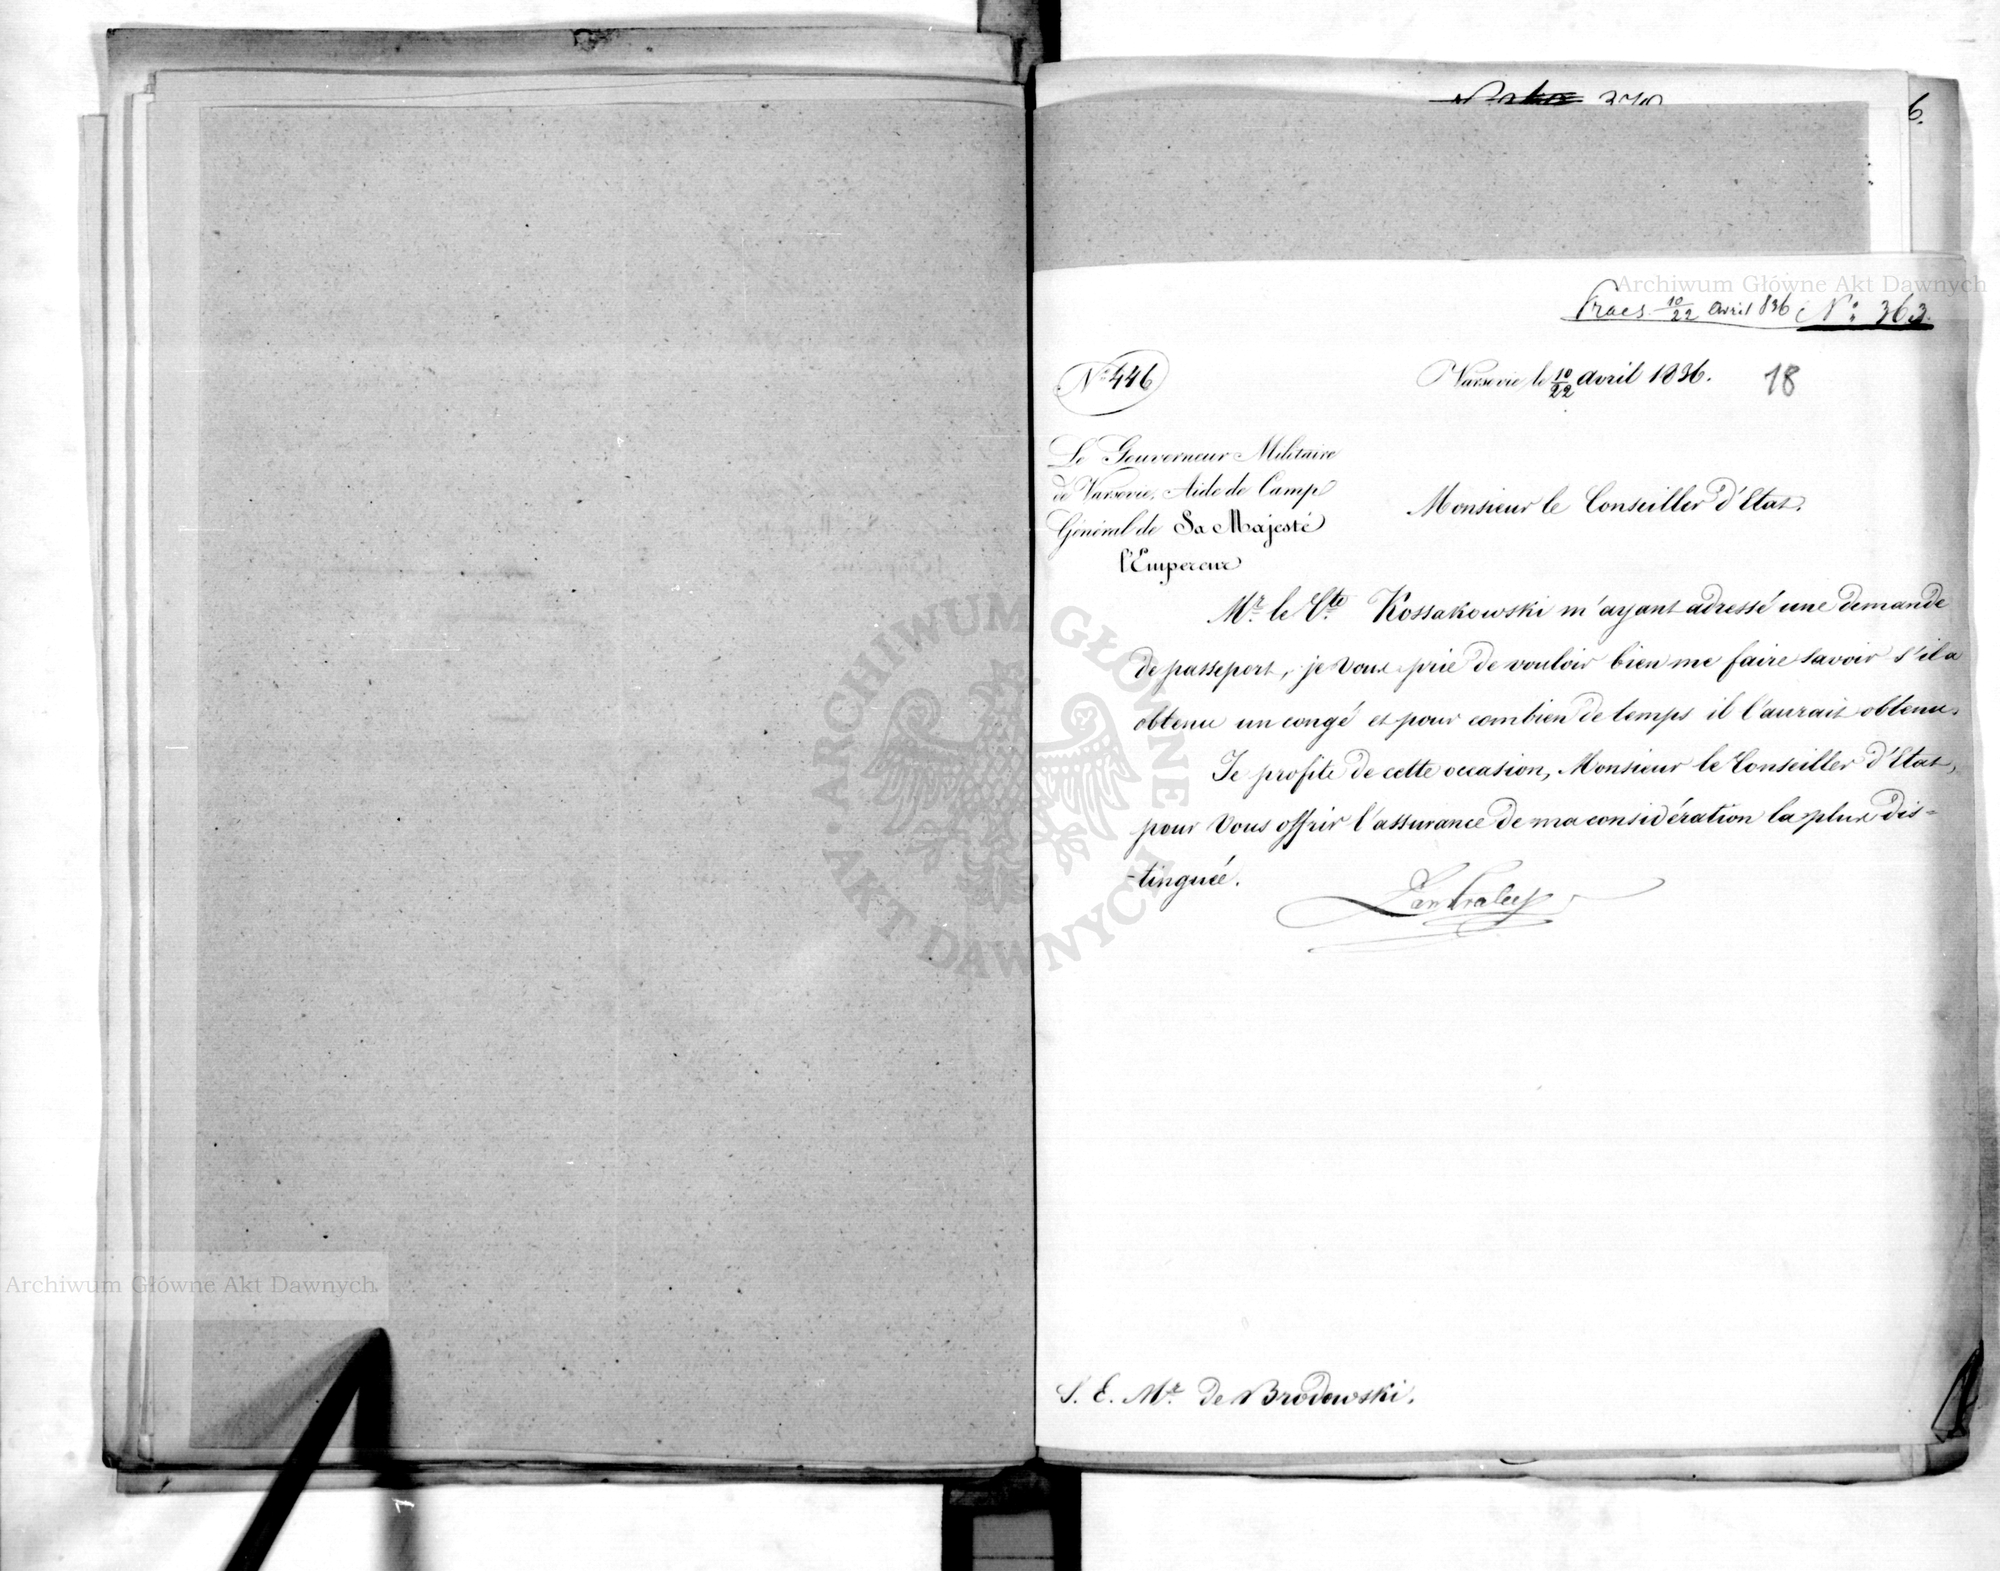 370
6.
Archiwum Główne Akt Dawnych
Praes 10/22 Avril 836 Nº 363.
Nº 446
Varsovie le 10/22 avril 1836.
18
Le Gouverneur Militaire
de Varsovie, Aide de Camp
Général de Sa Majesté
l'Empereur
Monsieur le Conseiller d'Etat,
Mr. le Cte. Kossakowski m'ayant adressé une demande
de passeport, je vous prie de vouloir bien me faire savoir s'il a
obtenu un congé et pour combien de temps il l'aurait obtenu.
Je profite de cette occasion, Monsieur le Conseiller d'Etat,
pour Vous offrir l'assurance de ma considération la plus dis=
-tinguée.
S. E. Mr. de Brodowski.
Archiwum Główne Akt Dawnych
ARCHIWUM GŁÓWNE AKT DAWNYCH